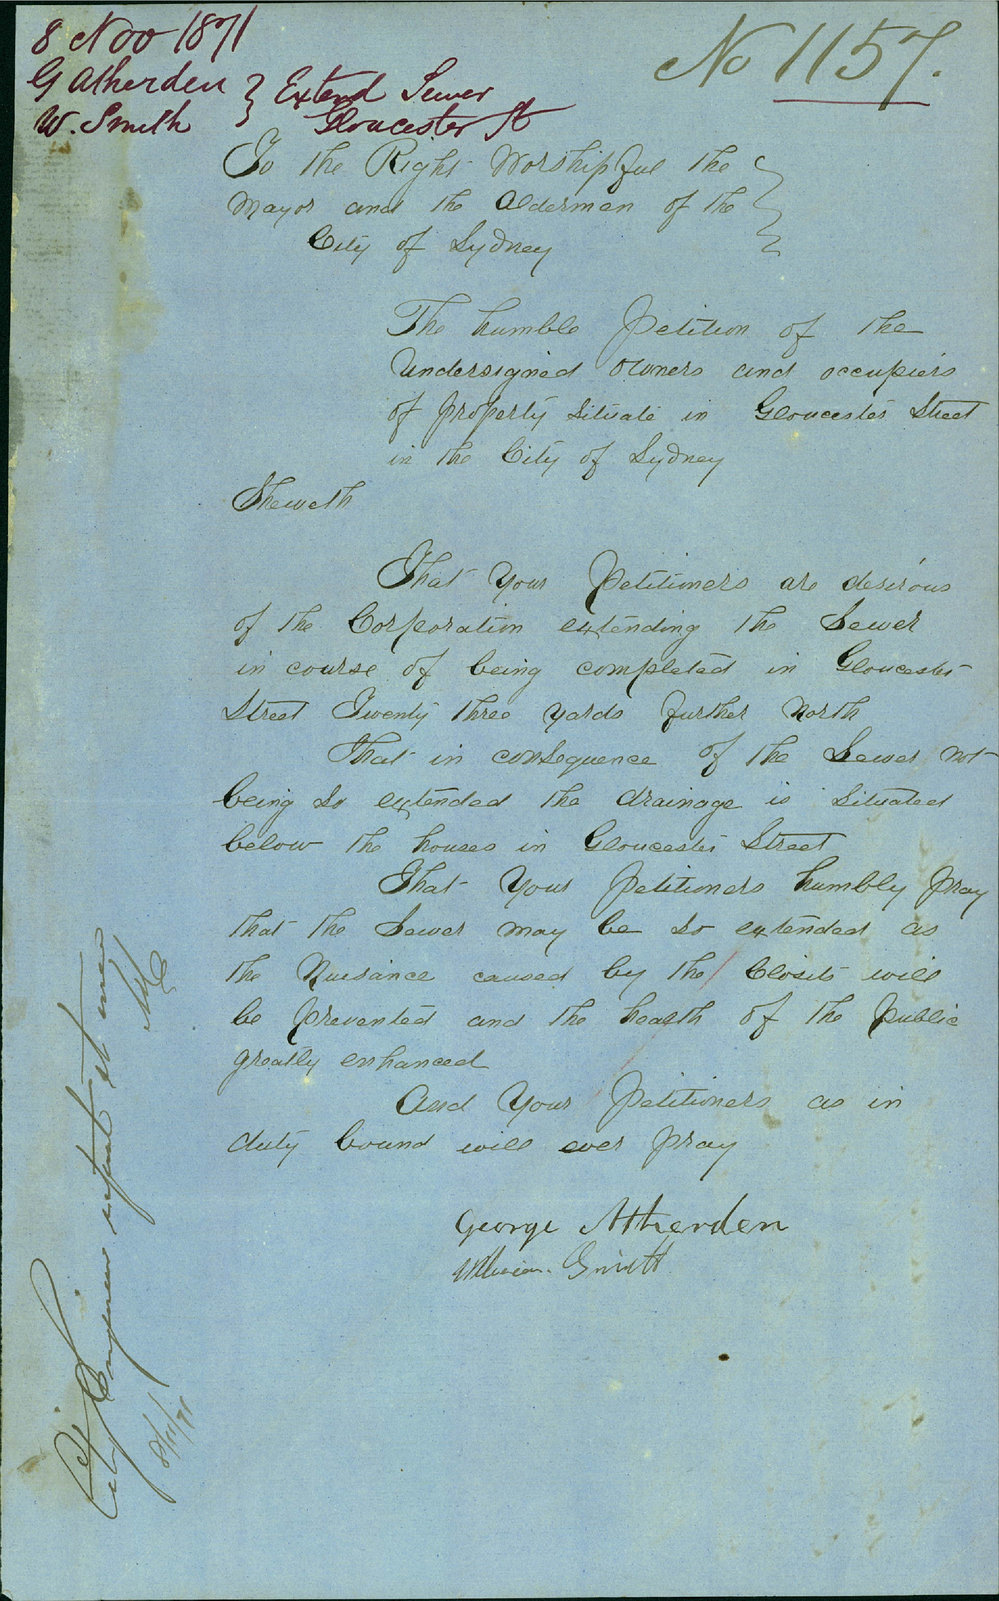 8 Nov 1871
No 1157.
G Atherden } Extend Sewer
W. Smith } Gloucester St
To the Right Worshipful the
Mayor and the Aldermen of the
City of Sydney
The humble Petition of the
Undersigned owners and occupiers
of property situate in Gloucester Street
in the City of Sydney
Sheweth
That Your Petitioners are desirous
of the Corporation extending the Sewer
in course of being completed in Gloucester
Street Twenty three yards further North
That in consequence of the Sewer not
being so extended the drainage is situated
below the houses in Gloucester Street
That Your Petitioners humbly pray
that the Sewer may be so extended as
the Nuisance caused by the Closets will
be prevented and the health of the Public
greatly enhanced
And Your Petitioners as in
duty bound will ever pray
George Atherden
William Smith
City Engineer report at once
8/11/71